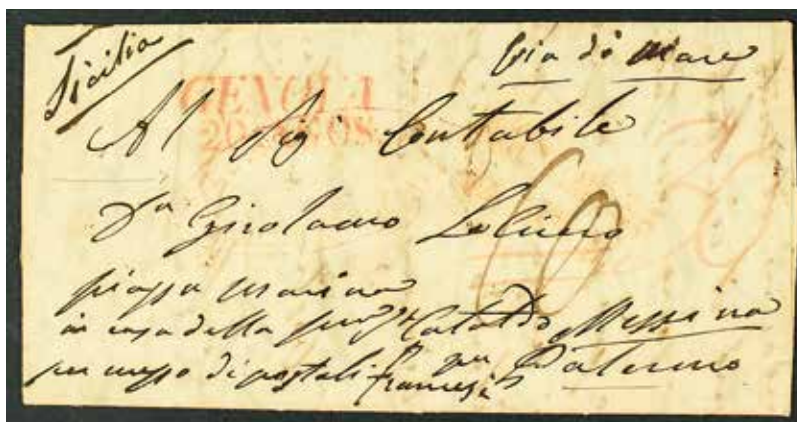 Sicilia
Via di Mare
GENOVA
Al Sig. Contabile
Dn Girolamo
60
30
piazza marina
in casa della Cataldo Messina
per mezzo di postali francesi per Palermo